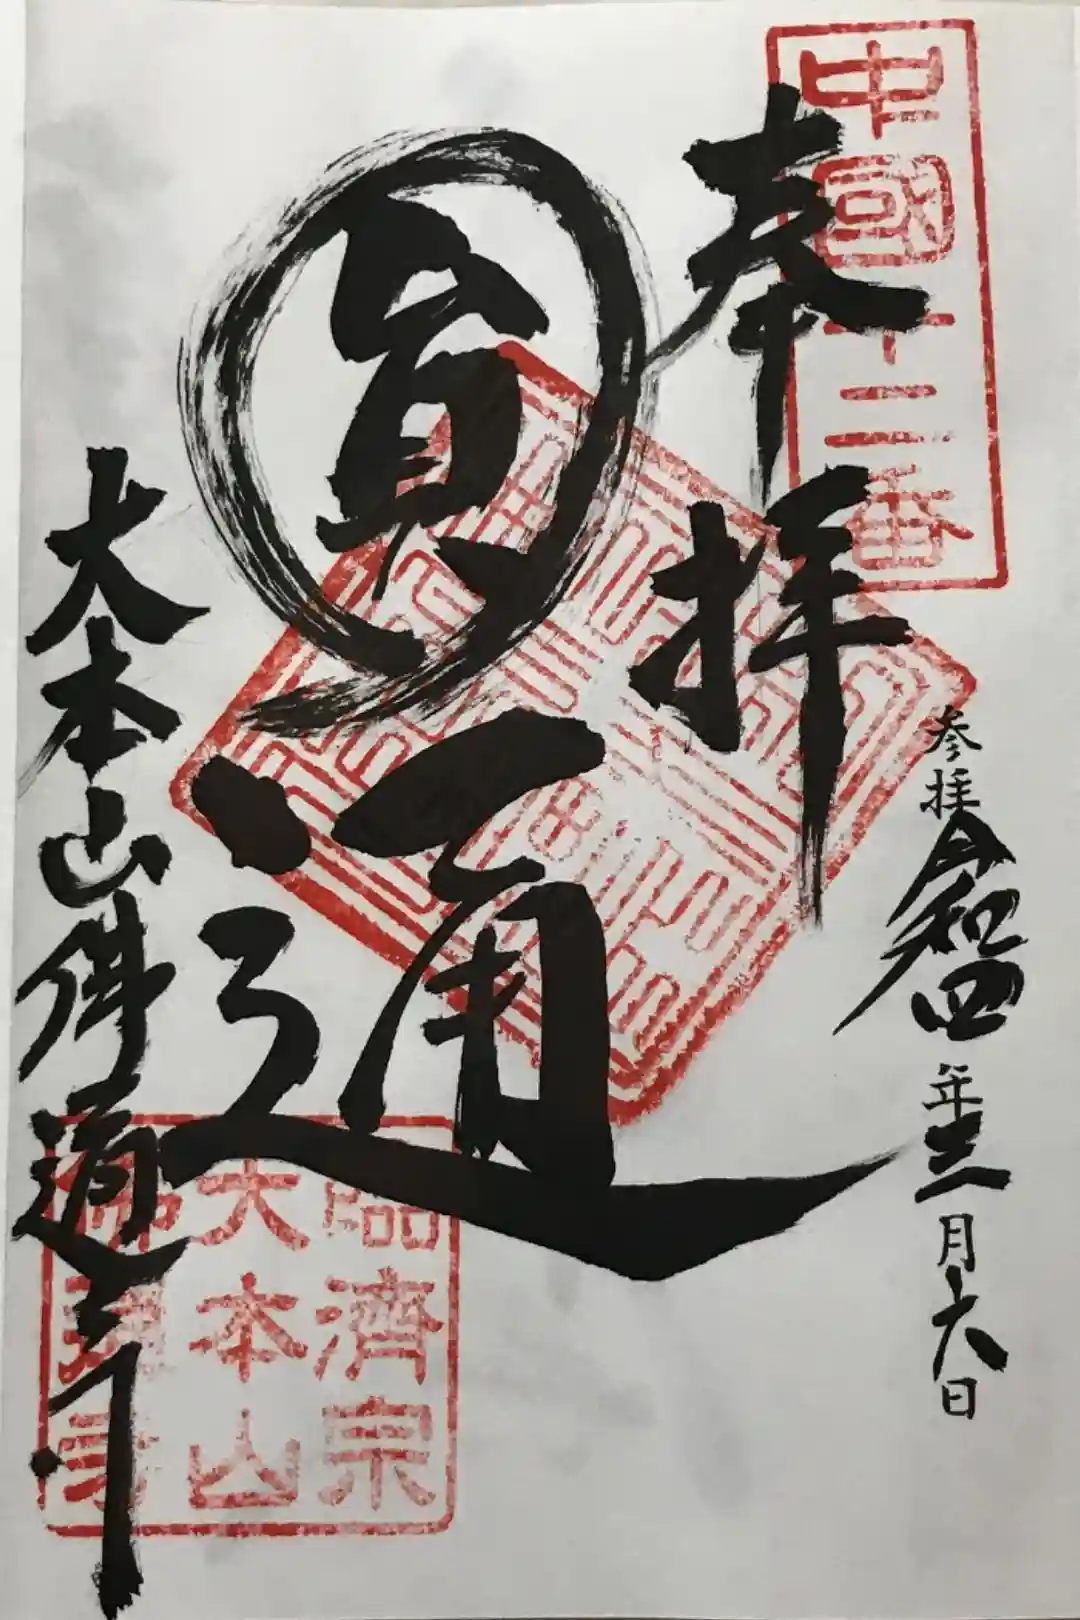 中國十二番
奉拝
参拝令和四年三月六日
圓通
大本山佛通寺
臨濟宗
大本山
佛通寺